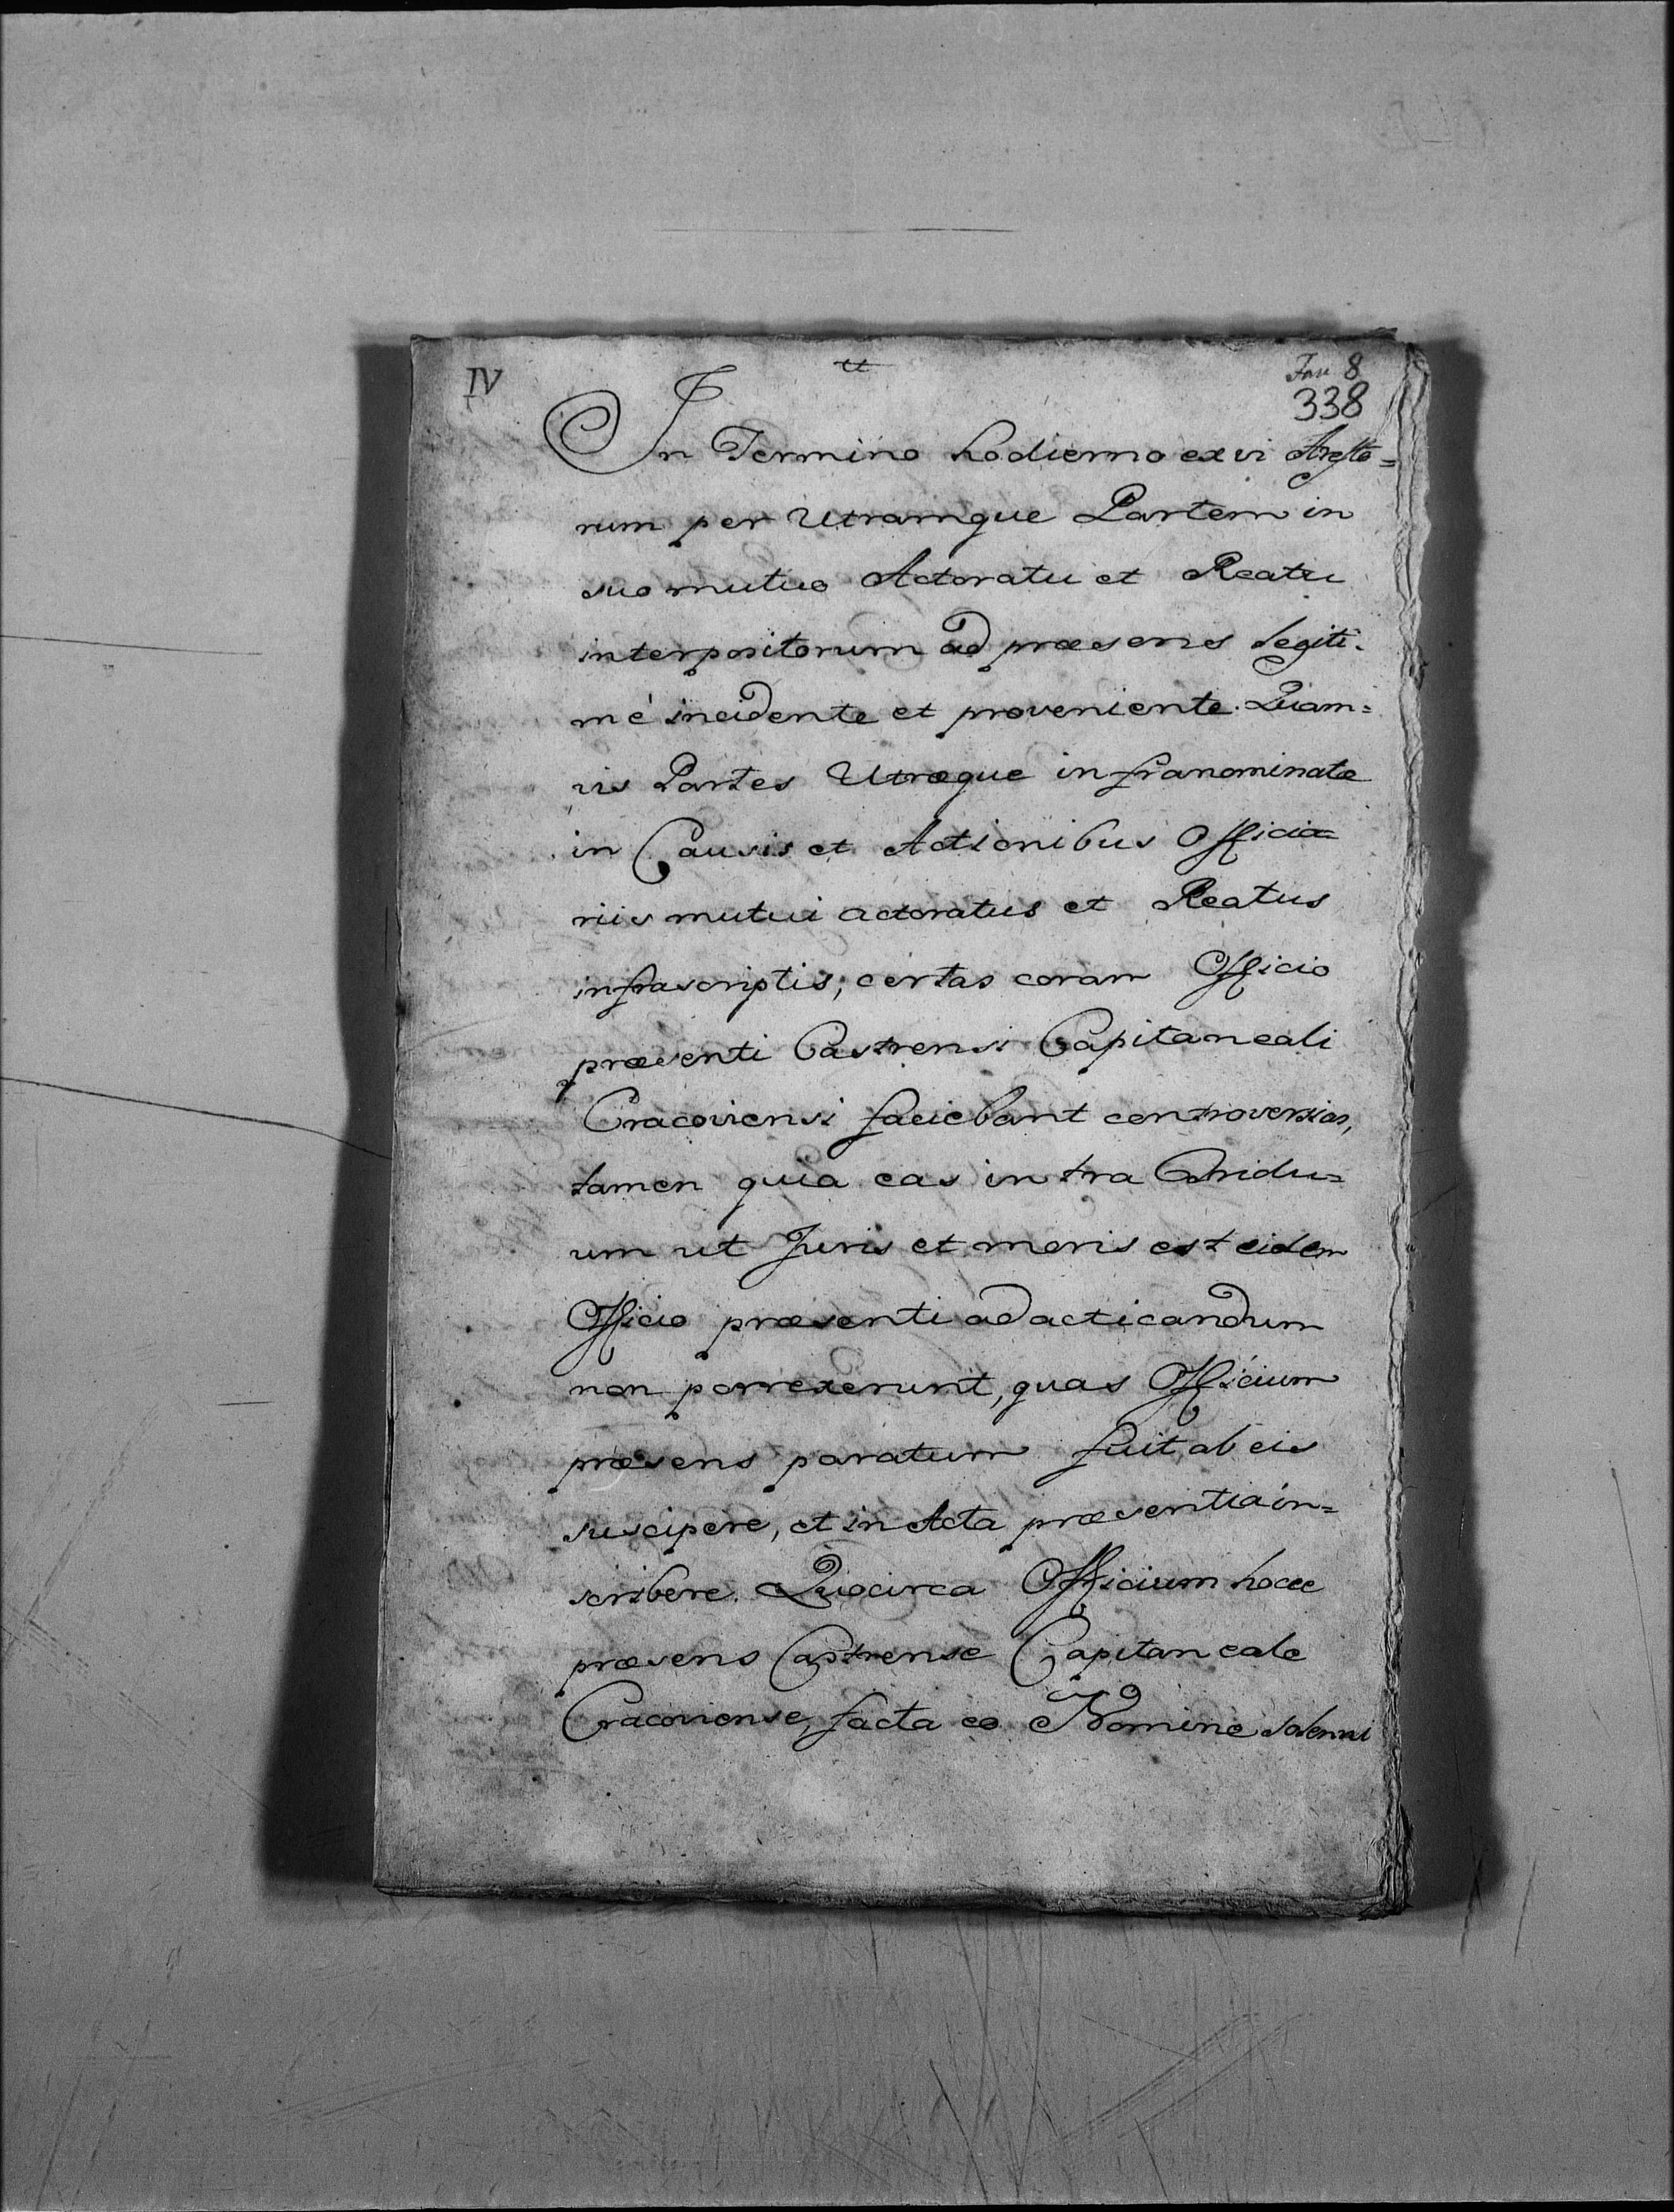 IV
Fasc 8
338
In Termino hodierno ex vi Aresto=
rum per Utramque Partem in
suo mutuo Actoratu et Reatu
interpositorum ad præsens legiti.
mé incidente et proveniente. Quam=
vis Partes Utræque infranominatæ
in Causis et Actionibus Officia=
riis mutui actoratus et Reatus
infrascriptis; certas coram Officio
præsenti Castrensi Capitaneali
Cracoviensi faciebant controversias,
tamen quia eas intra Tridu=
um ut Juris et moris est eidem
Officio præsenti ad acticandum
non porrexerunt, quas Officium
præsens paratum fuit ab eis
suscipere, et in Acta præsentia in=
scribere. Quocirca Officium hocce
præsens Castrense Capitaneale
Cracoviense, facta eo Nomine solenni